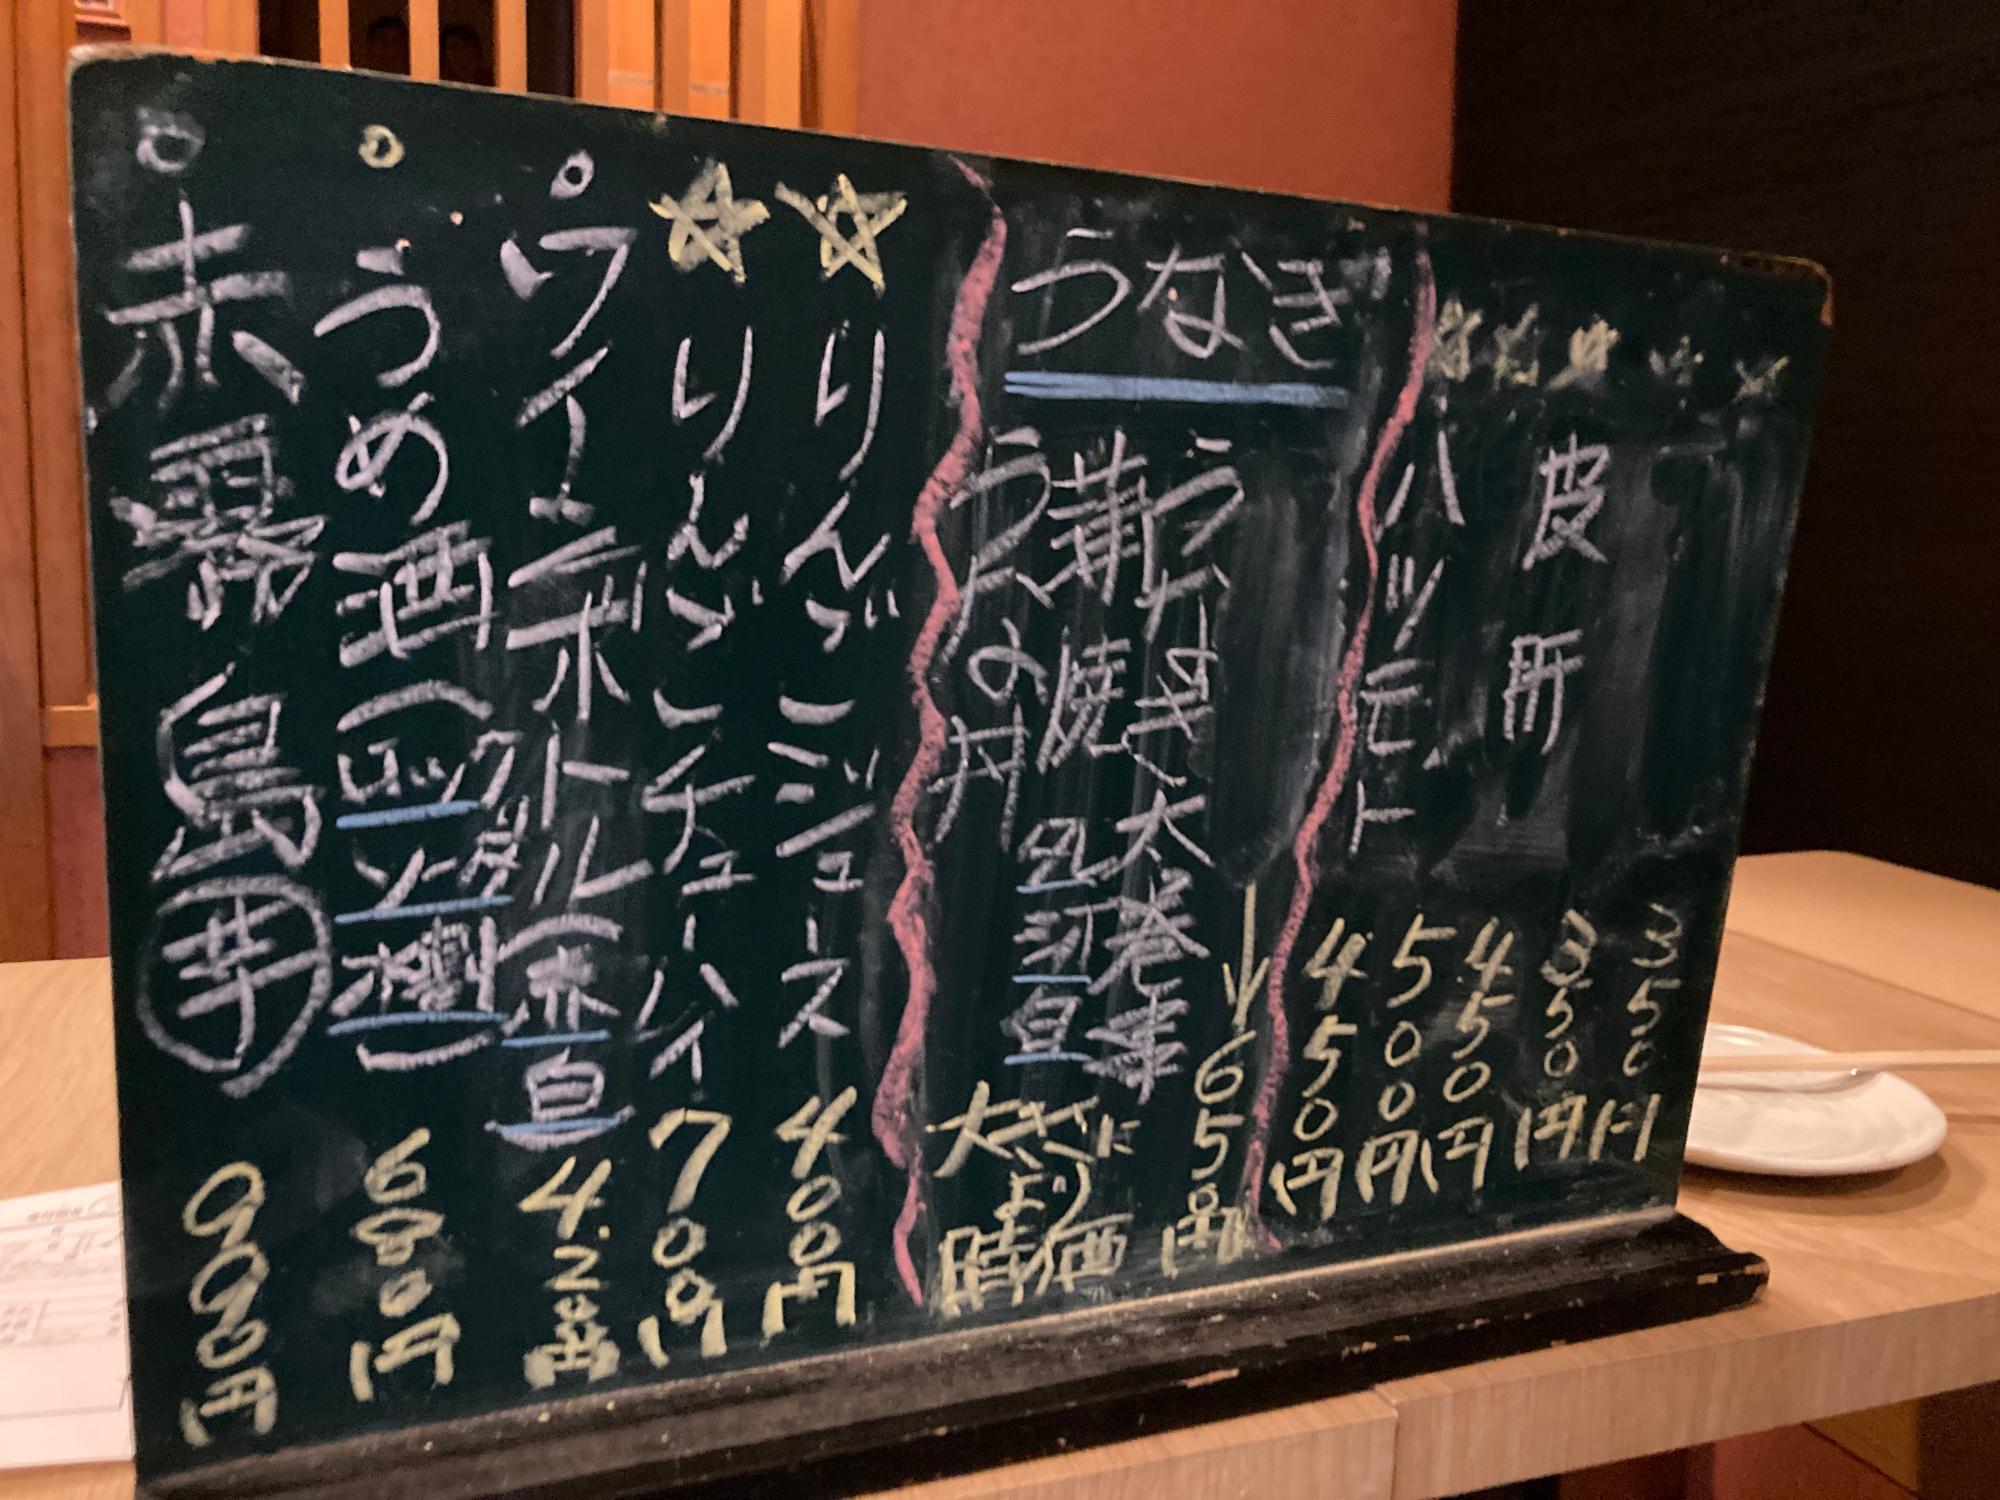 350円
皮 350円
肝 450円
ハツモト 500円
450円
うなぎ
うなぎ太巻 650円
蒲焼
うな丼
大きさにより時価
☆りんごジュース 400円
☆りんごチューハイ 700円
ワインボトル(赤白 4.200円
うめ酒(ロック ソーダ 水割) 680円
赤霧島 芋 990円